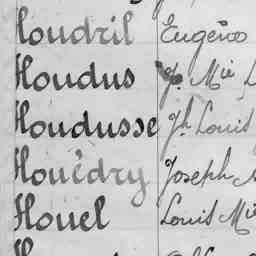 Houdril Eugène
Houdus Jh. Mie
Houdusse Jh Louis
Houëdry Joseph
Houel Louis Mie